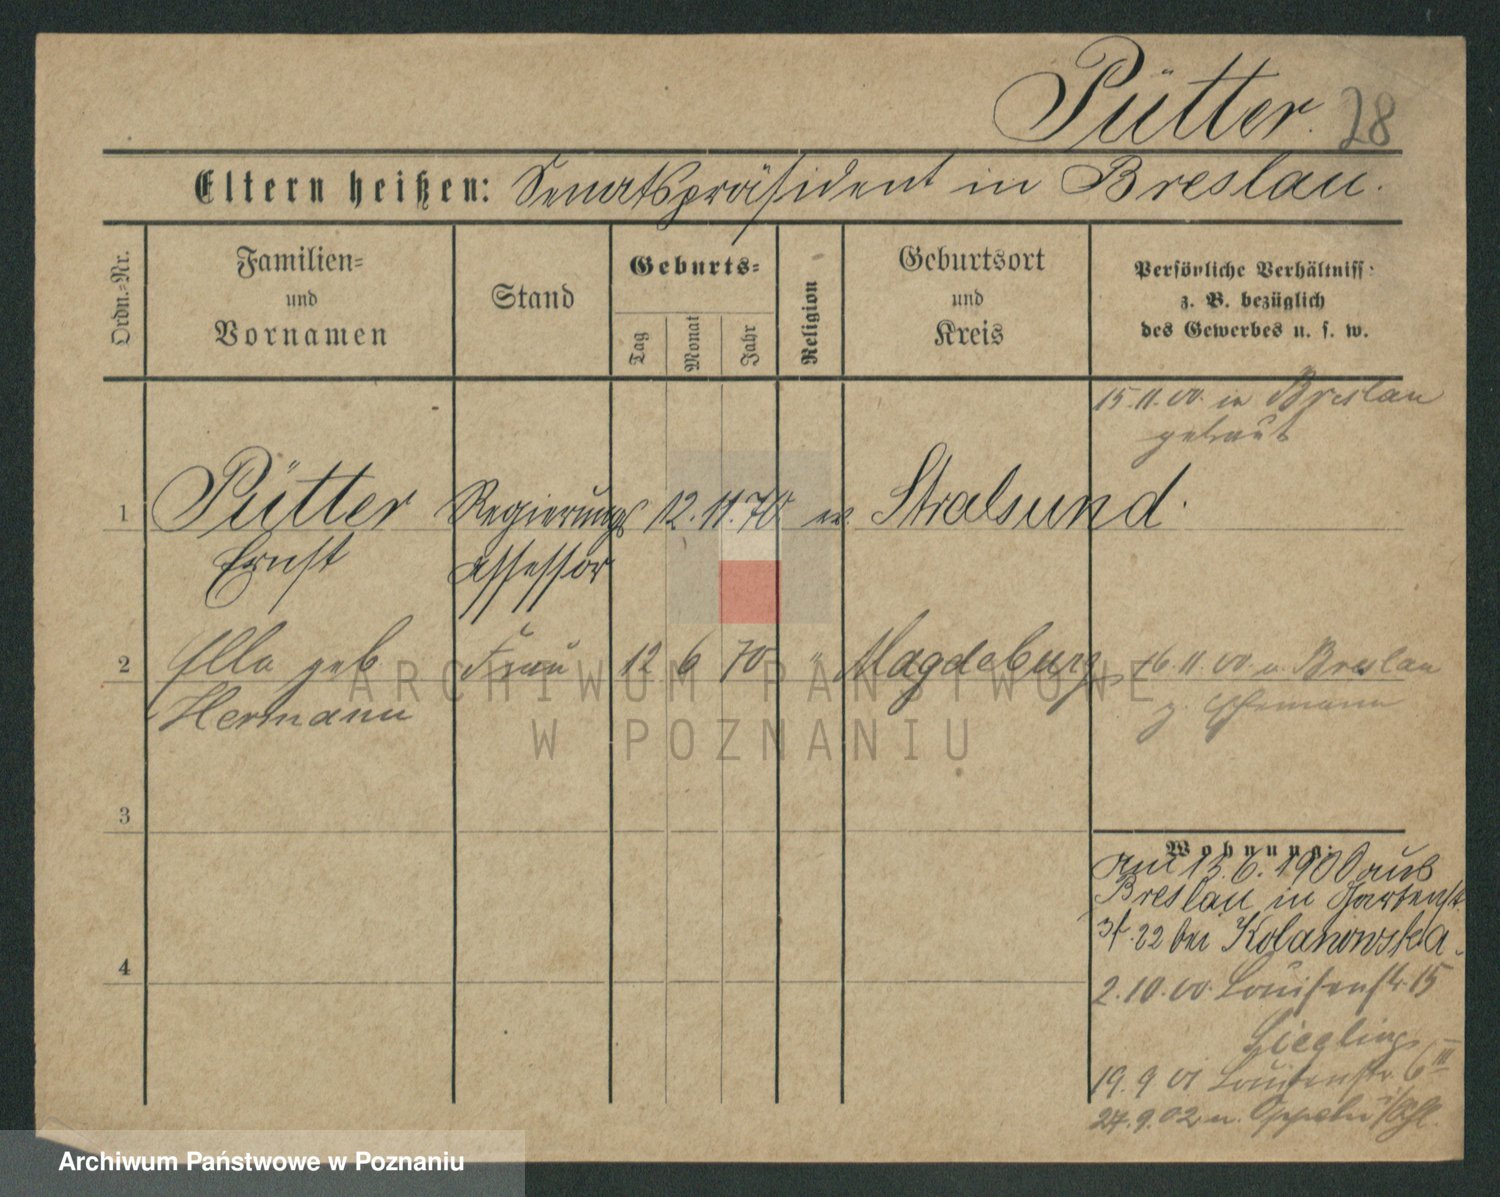 Pütter. 28
Eltern heißen: Senatspräsident in Breslau.
Ordn.-Nr.
Familien-
und
Vornamen
Stand
Geburts-
Tag
Monat
Jahr
Religion
Geburtsort
und
Kreis
Persönliche Verhältniss
z. B. bezüglich
des Gewerbes u. s. w.
15.11.00. in Breslau
getraut
1 Pütter Regierungs 12. 11. 70. ev. Stralsund.
Ernst assessor
2 Ella geb Frau 12 6 70 " Magdeburg, 16.11.00 v. Breslau
Hermann z. Ehemann
3
4
Wohnung:
am 13.6.1900 aus
Breslau in Gartenst
22 bei Kolanowska.
2.10.00. Louisenstr. 15
19.9.01 Louisenstr. 6 III
24.9.02 n. Oppeln
ARCHIWUM PAŃSTWOWE
W POZNANIU
Archiwum Państwowe w Poznaniu